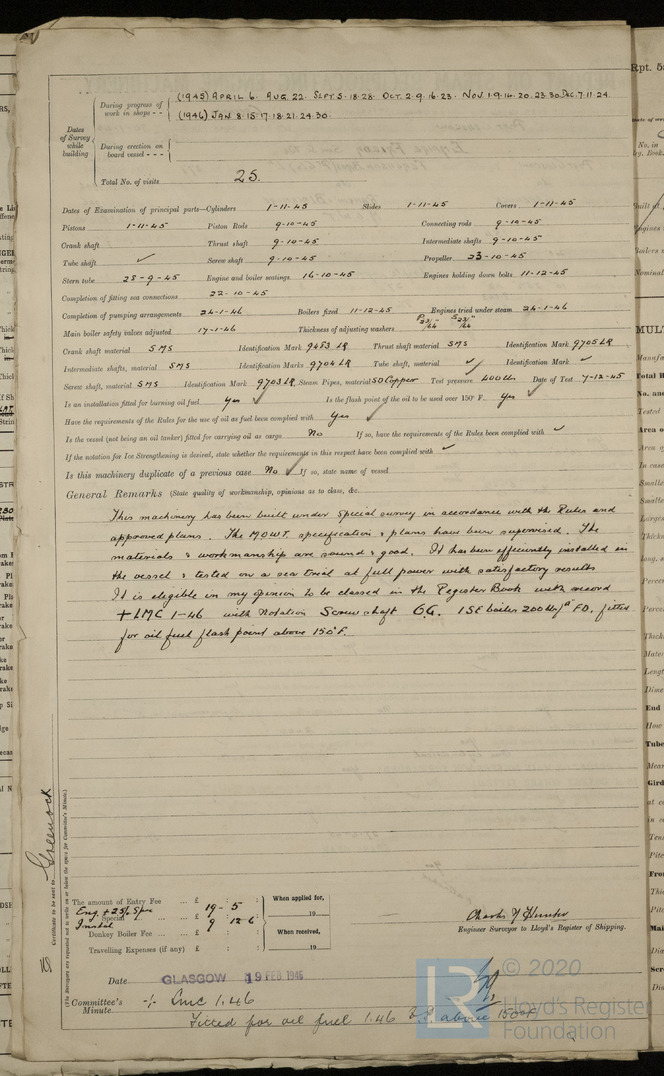 (1945) APRIL 6. AUG. 22. SEPT. 5. 18. 28. OCT. 2. 9. 16. 23. NOV. 1. 9. 14. 20. 23. 30. DEC. 7. 11. 24.
During progress of work in shops - -
(1946) JAN 8. 15. 17. 18. 21. 24. 30.
Dates of Survey while building
During erection on board vessel - - -
Total No. of visits 25.
Dates of Examination of principal parts—Cylinders 1-11-45 Slides 1-11-45 Covers 1-11-45
Pistons 1-11-45 Piston Rods 9-10-45 Connecting rods 9-10-45
Crank shaft Thrust shaft 9-10-45 Intermediate shafts 9-10-45
Tube shaft ✓ Screw shaft 9-10-45 Propeller 23-10-45
Stern tube 28-9-45 Engine and boiler seatings 16-10-45 Engines holding down bolts 11-12-45
Completion of fitting sea connections 22-10-45
Completion of pumping arrangements 24-1-46 Boilers fixed 11-12-45 Engines tried under steam 24-1-46
Main boiler safety valves adjusted 17-1-46 Thickness of adjusting washers P 23/64" S 23/64"
Crank shaft material SMS Identification Mark 9483 LR Thrust shaft material SMS Identification Mark 9705 LR
Intermediate shafts, material SMS Identification Marks 9704 LR Tube shaft, material ✓ Identification Mark ✓
Screw shaft, material SMS Identification Mark 9703 LR Steam Pipes, material SD Copper Test pressure 400 lbs Date of Test 7-12-45
Is an installation fitted for burning oil fuel yes ✓ Is the flash point of the oil to be used over 150° F. yes ✓
Have the requirements of the Rules for the use of oil as fuel been complied with yes ✓
Is the vessel (not being an oil tanker) fitted for carrying oil as cargo No If so, have the requirements of the Rules been complied with ✓
If the notation for Ice Strengthening is desired, state whether the requirements in this respect have been complied with ✓
Is this machinery duplicate of a previous case No ✓ If so, state name of vessel
General Remarks (State quality of workmanship, opinions as to class, &c.
This machinery has been built under special survey in accordance with the Rules and
approved plans. The MOWT specification & plans have been supervised. The
materials & workmanship are sound & good. It has been efficiently installed in
the vessel & tested on a sea trial at full power with satisfactory results
It is elegible in my opinion to be classed in the Register Book with record
+ LMC 1-46 with notation Screwshaft C.G. 1 SE boiler 200 lb/□" FD. fitted
for oil fuel flash point above 150°F.
Certificate to be sent to Greenock
(The Surveyors are requested not to write on or below the space for Committee's Minute.)
The amount of Entry Fee ... £ 19 - 5 :
Eng + 25% Spec
Special
Instal £ 9 . 12 . 6
Donkey Boiler Fee ... ... £ : :
Travelling Expenses (if any) £ : :
When applied for,
19
When received,
19
Charles Hunter
Engineer Surveyor to Lloyd's Register of Shipping.
Date GLASGOW 19 FEB 1946
Committee's Minute + LMC 1.46
Fitted for oil fuel 1.46 F.P. above 150°F
LR © 2020
Lloyd's Register
Foundation
Rpt. 5